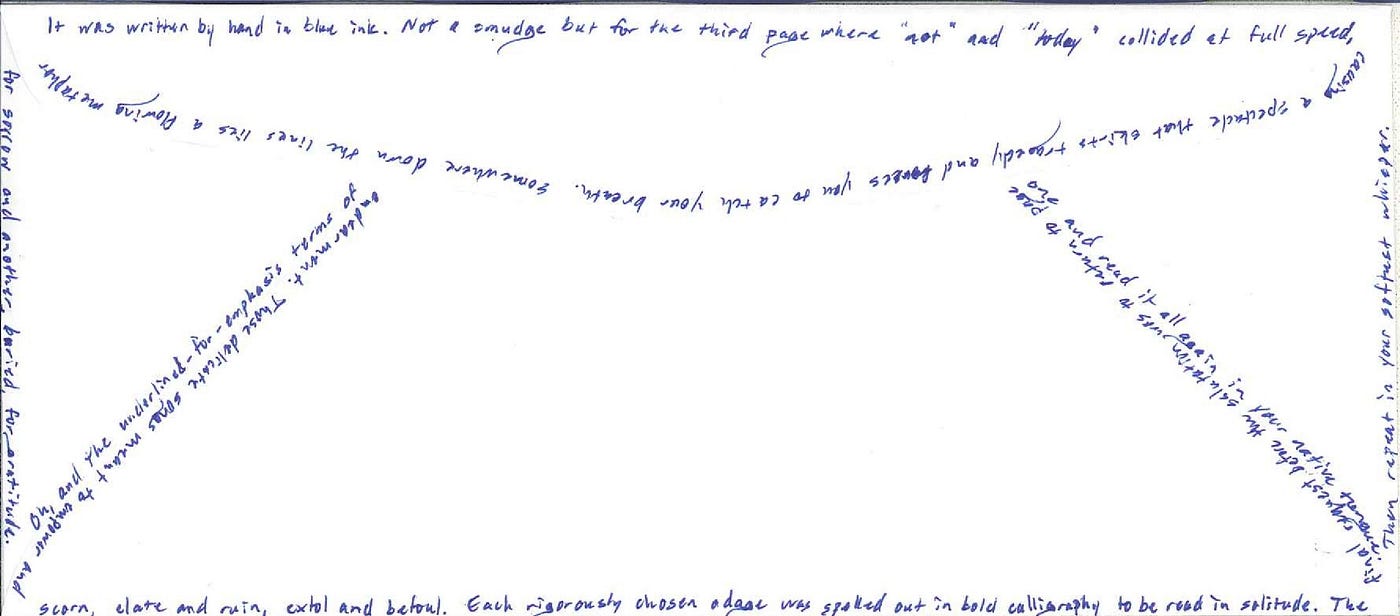 It was written by hand in blue ink. Not a smudge but for the third page where "not" and "today" collided at full speed,
causing a spectacle that skirts tragedy and forces you to catch your breath. Somewhere down the lines lies a flowing metaphor
for sorrow and another, buried, for gratitude.
Oh, and the underlined-for-emphasis terms of
endearment. Those delicate songs meant to empower and
scorn, elate and ruin, extol and befoul. Each rigorously chosen adage was spelled out in bold calligraphy to be read in solitude. The
final request before the salutation was to return to page
one and read it all again in your native tongue.
Then repeat in your softest whisper.